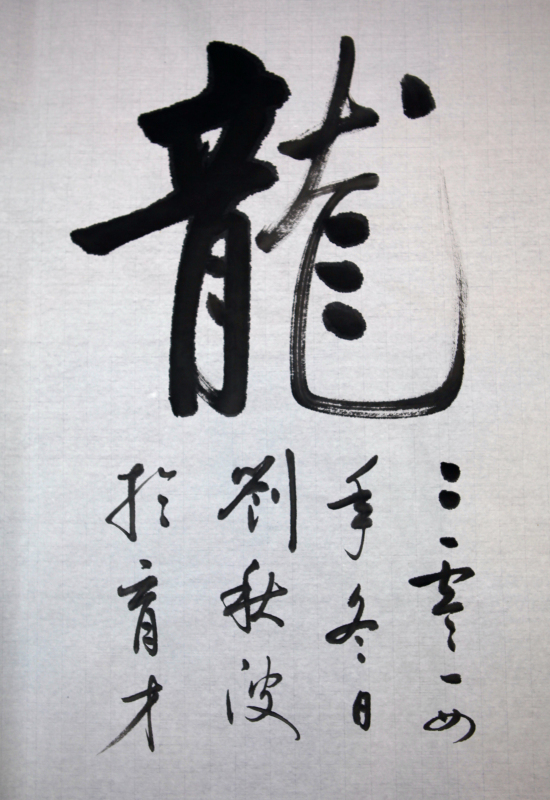 龍
二零一四
年冬日
劉秋波
於育才